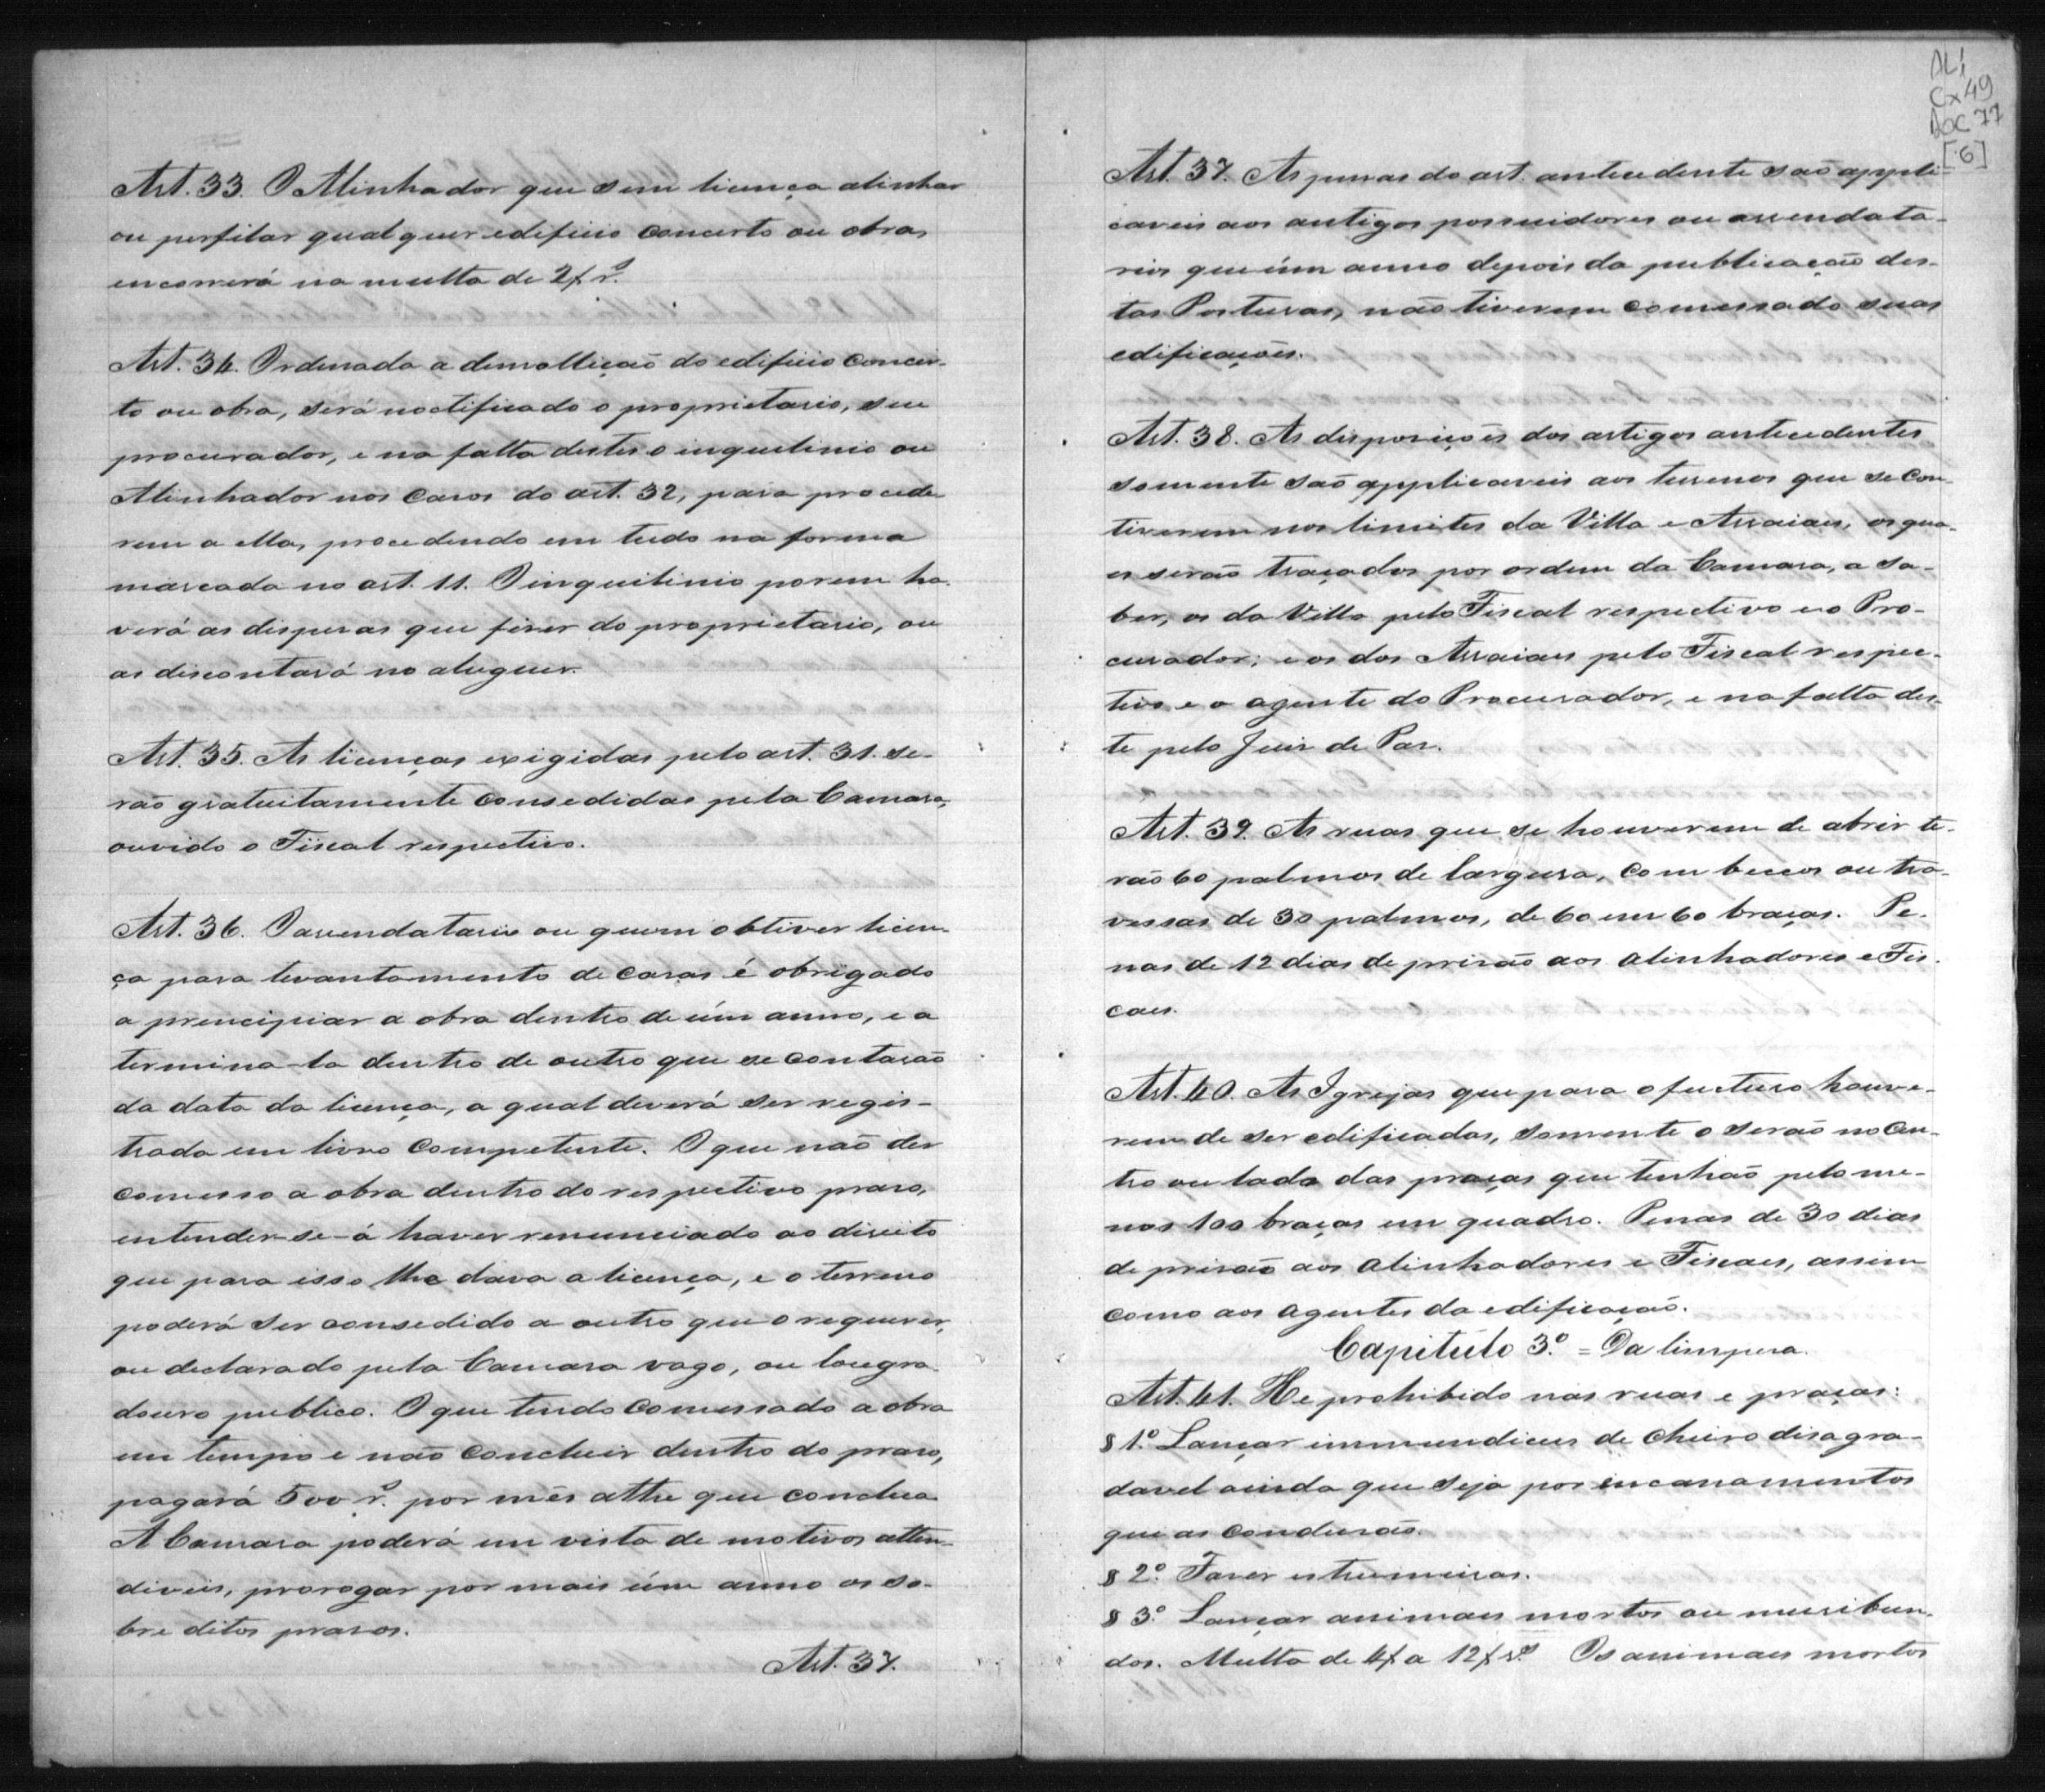 Art. 33. O Alinhador que sem licença alinhar
ou perfilar qualquer edificio concerto ou obra,
encorrerá na multa de 2$ rs.
Art. 34. Ordenada a demolliçaõ do edificio concer-
to ou obra, será noctificado o proprietario, seu
procurador, e na falta destes o inquilinio ou
Alinhador nos casos do art. 32, para procede
rem a ella, procedendo em tudo na forma
marcada no art. 11. O inquilinio porem ha-
verá as dispesas que fizer do proprietario, ou
as discontará no aluguer.
Art. 35. As licenças exigidas pelo art. 31. se-
rão gratuitamente consedidas pela Camara,
ouvido o Fiscal respectivo.
Art. 36. O arrendatario ou quem obtiver licen-
ça para levantamento de casas é obrigado
a principiar a obra dentro de úm anno, e a
termina-la dentro de outro que se contaraõ
da data da licença, a qual deverá ser regis-
trada em livro competente. O que naõ der
comesso a obra dentro do respectivo praso,
entender-se-á haver renunciado ao direito
que para isso lhe dava a licença, e o terreno
poderá ser consedido a outro que o requerer,
ou declarado pela Camara vago, ou lougra
douro publico. O que tendo comessado a obra
em tempo e não concluir dentro do praso,
pagará 500 rs. por mês athe que conclua
A Camara poderá em vista de motivos atten-
diveis, prorogar por mais úm anno os so-
bre ditos prasos.
Art. 37.
AL1
Cx49
Doc 77
[6]
Art. 37. As penas do art. antecedente saõ appli-
caveis aos antigos possuidores ou arrendata-
rios que úm anno depois da publicaçaõ des-
tas Posturas, naõ tiverem comessado suas
edificações.
Art. 38. As disposições dos artigos antecedentes
somente saõ applicaveis aos terrenos que se con-
tiverem nos limites da Villa e Arraiaes, os qua-
es serão traçados por ordem da Camara, a sa-
ber, os da Villa pelo Fiscal respectivo e o Pro-
curador; e os dos Arraiaes pelo Fiscal respec-
tivo e o agente do Procurador, e na falta des-
te pelo Juiz de Paz.
Art. 39. As ruas que se houverem de abrir te-
rão 60 palmos de largura, com beccos ou tra-
vessas de 30 palmos, de 60 em 60 braças. Pe-
nas de 12 dias de prizão aos alinhadores e Fis-
caes.
Art. 40. As Igrejas que para o fucturo houve-
rem de ser edificadas, somente o serão no cen-
tro ou lado das praças que tenhaõ pelo me-
nos 100 braças em quadro. Penas de 30 dias
de prizaõ aos alinhadores e Fiscaes, assim
como aos agentes da edificaçaõ.
Capitulo 3º. = Da limpeza.
Art. 41. He prohibido nas ruas e praças:
§ 1º. Lançar immundicies de cheiro disagra-
davel ainda que seja por encanamentos
que as condusão.
§ 2º. Fazer estrumeiras.
§ 3º. Lançar animaes mortos ou muribun-
dos. Multa de 4$ a 12$ rs. Os animaes mortos